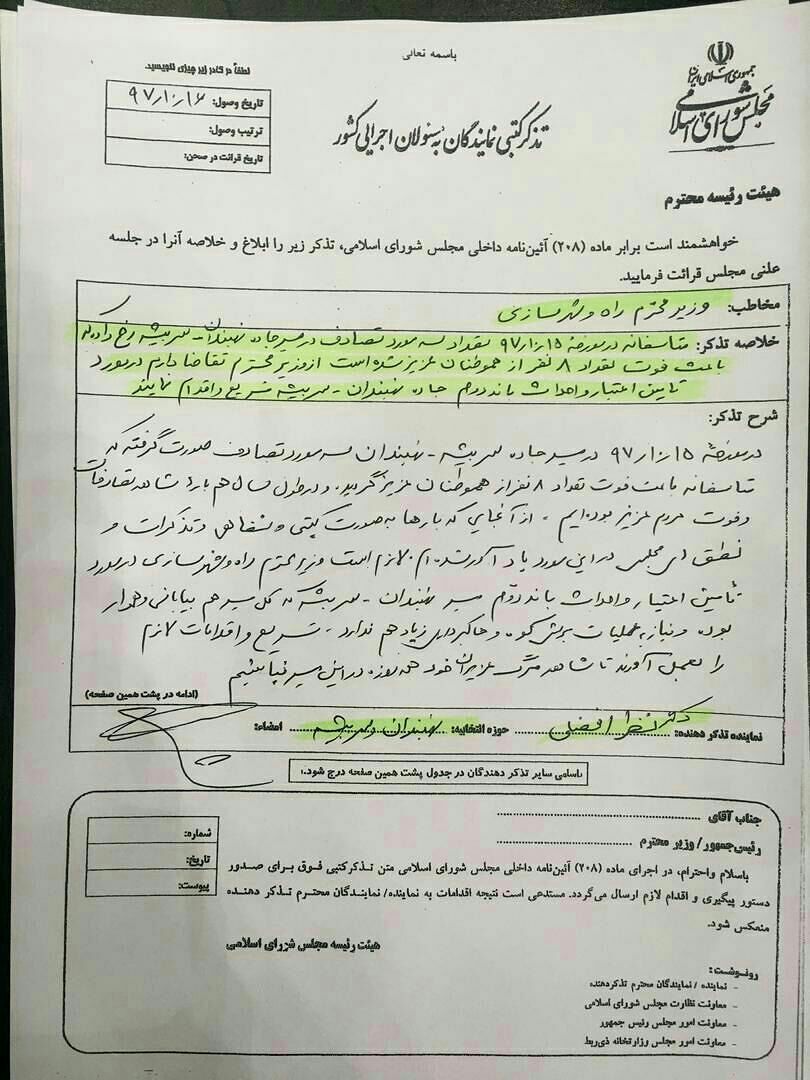 باسمه تعالی
جمهوری اسلامی ایران
مجلس شورای اسلامی
لطفاً در کادر زیر چیزی ننویسید.
تاریخ وصول: ۹۷/۱۰/۱۶
ترتیب وصول:
تاریخ قرائت در صحن:
تذکر کتبی نمایندگان به مسئولان اجرایی کشور
هیئت رئیسه محترم
خواهشمند است برابر ماده (۲۰۸) آئین‌نامه داخلی مجلس شورای اسلامی، تذکر زیر را ابلاغ و خلاصه آنرا در جلسه
علنی مجلس قرائت فرمایید.
مخاطب: وزیر محترم راه و شهرسازی
خلاصه تذکر: متاسفانه در مورخهٔ ۹۷/۱۰/۱۵ تعداد سه مورد تصادف در مسیر جاده نهبندان - سربیشه رخ داده که
باعث فوت تعداد ۸ نفر از هموطنان عزیز شده است از وزیر محترم تقاضا دارم در مورد
تامین اعتبار و احداث باند دوم جاده نهبندان - سربیشه تسریع و اقدام نمایند
شرح تذکر:
در مورخهٔ ۹۷/۱۰/۱۵ در مسیر جاده سربیشه - نهبندان سه مورد تصادف صورت گرفته که
متاسفانه باعث فوت تعداد ۸ نفر از هموطنان عزیز گردید. و در طول سال هم بارها شاهد تصادفات
و فوت مردم عزیز بوده‌ایم. از آنجایی که بارها به صورت کتبی و شفاهی و تذکرات و
نطق های مجلس در این مورد یادآور شده ام. لازم است وزیر محترم راه و شهرسازی در مورد
تأمین اعتبار و احداث باند دوم مسیر نهبندان - سربیشه که کل مسیر هم بیابانی و هموار
بوده و نیاز به عملیات برش کوه و خاکبرداری زیاد هم ندارد، تسریع و اقدامات لازم
را بعمل آورند تا شاهد مرگ عزیزان خود همه روزه در این مسیر نباشیم
(ادامه در پشت همین صفحه)
نماینده تذکر دهنده: دکتر نظر افضلی حوزه انتخابیه: نهبندان و سربیشه امضاء:
اسامی سایر تذکر دهندگان در جدول پشت همین صفحه درج شود.
جناب آقای
رئیس‌جمهور / وزیر محترم
شماره:
تاریخ:
پیوست:
باسلام واحترام، در اجرای ماده (۲۰۸) آئین‌نامه داخلی مجلس شورای اسلامی متن تذکر کتبی فوق برای صدور
دستور پیگیری و اقدام لازم ارسال می‌گردد. مستدعی است نتیجه اقدامات به نماینده/ نمایندگان محترم تذکر دهنده
منعکس شود.
هیئت رئیسه مجلس شورای اسلامی
رونوشت:
- نماینده / نمایندگان محترم تذکردهنده
- معاونت نظارت مجلس شورای اسلامی
- معاونت امور مجلس رئیس جمهور
- معاونت امور مجلس وزارتخانه ذی‌ربط